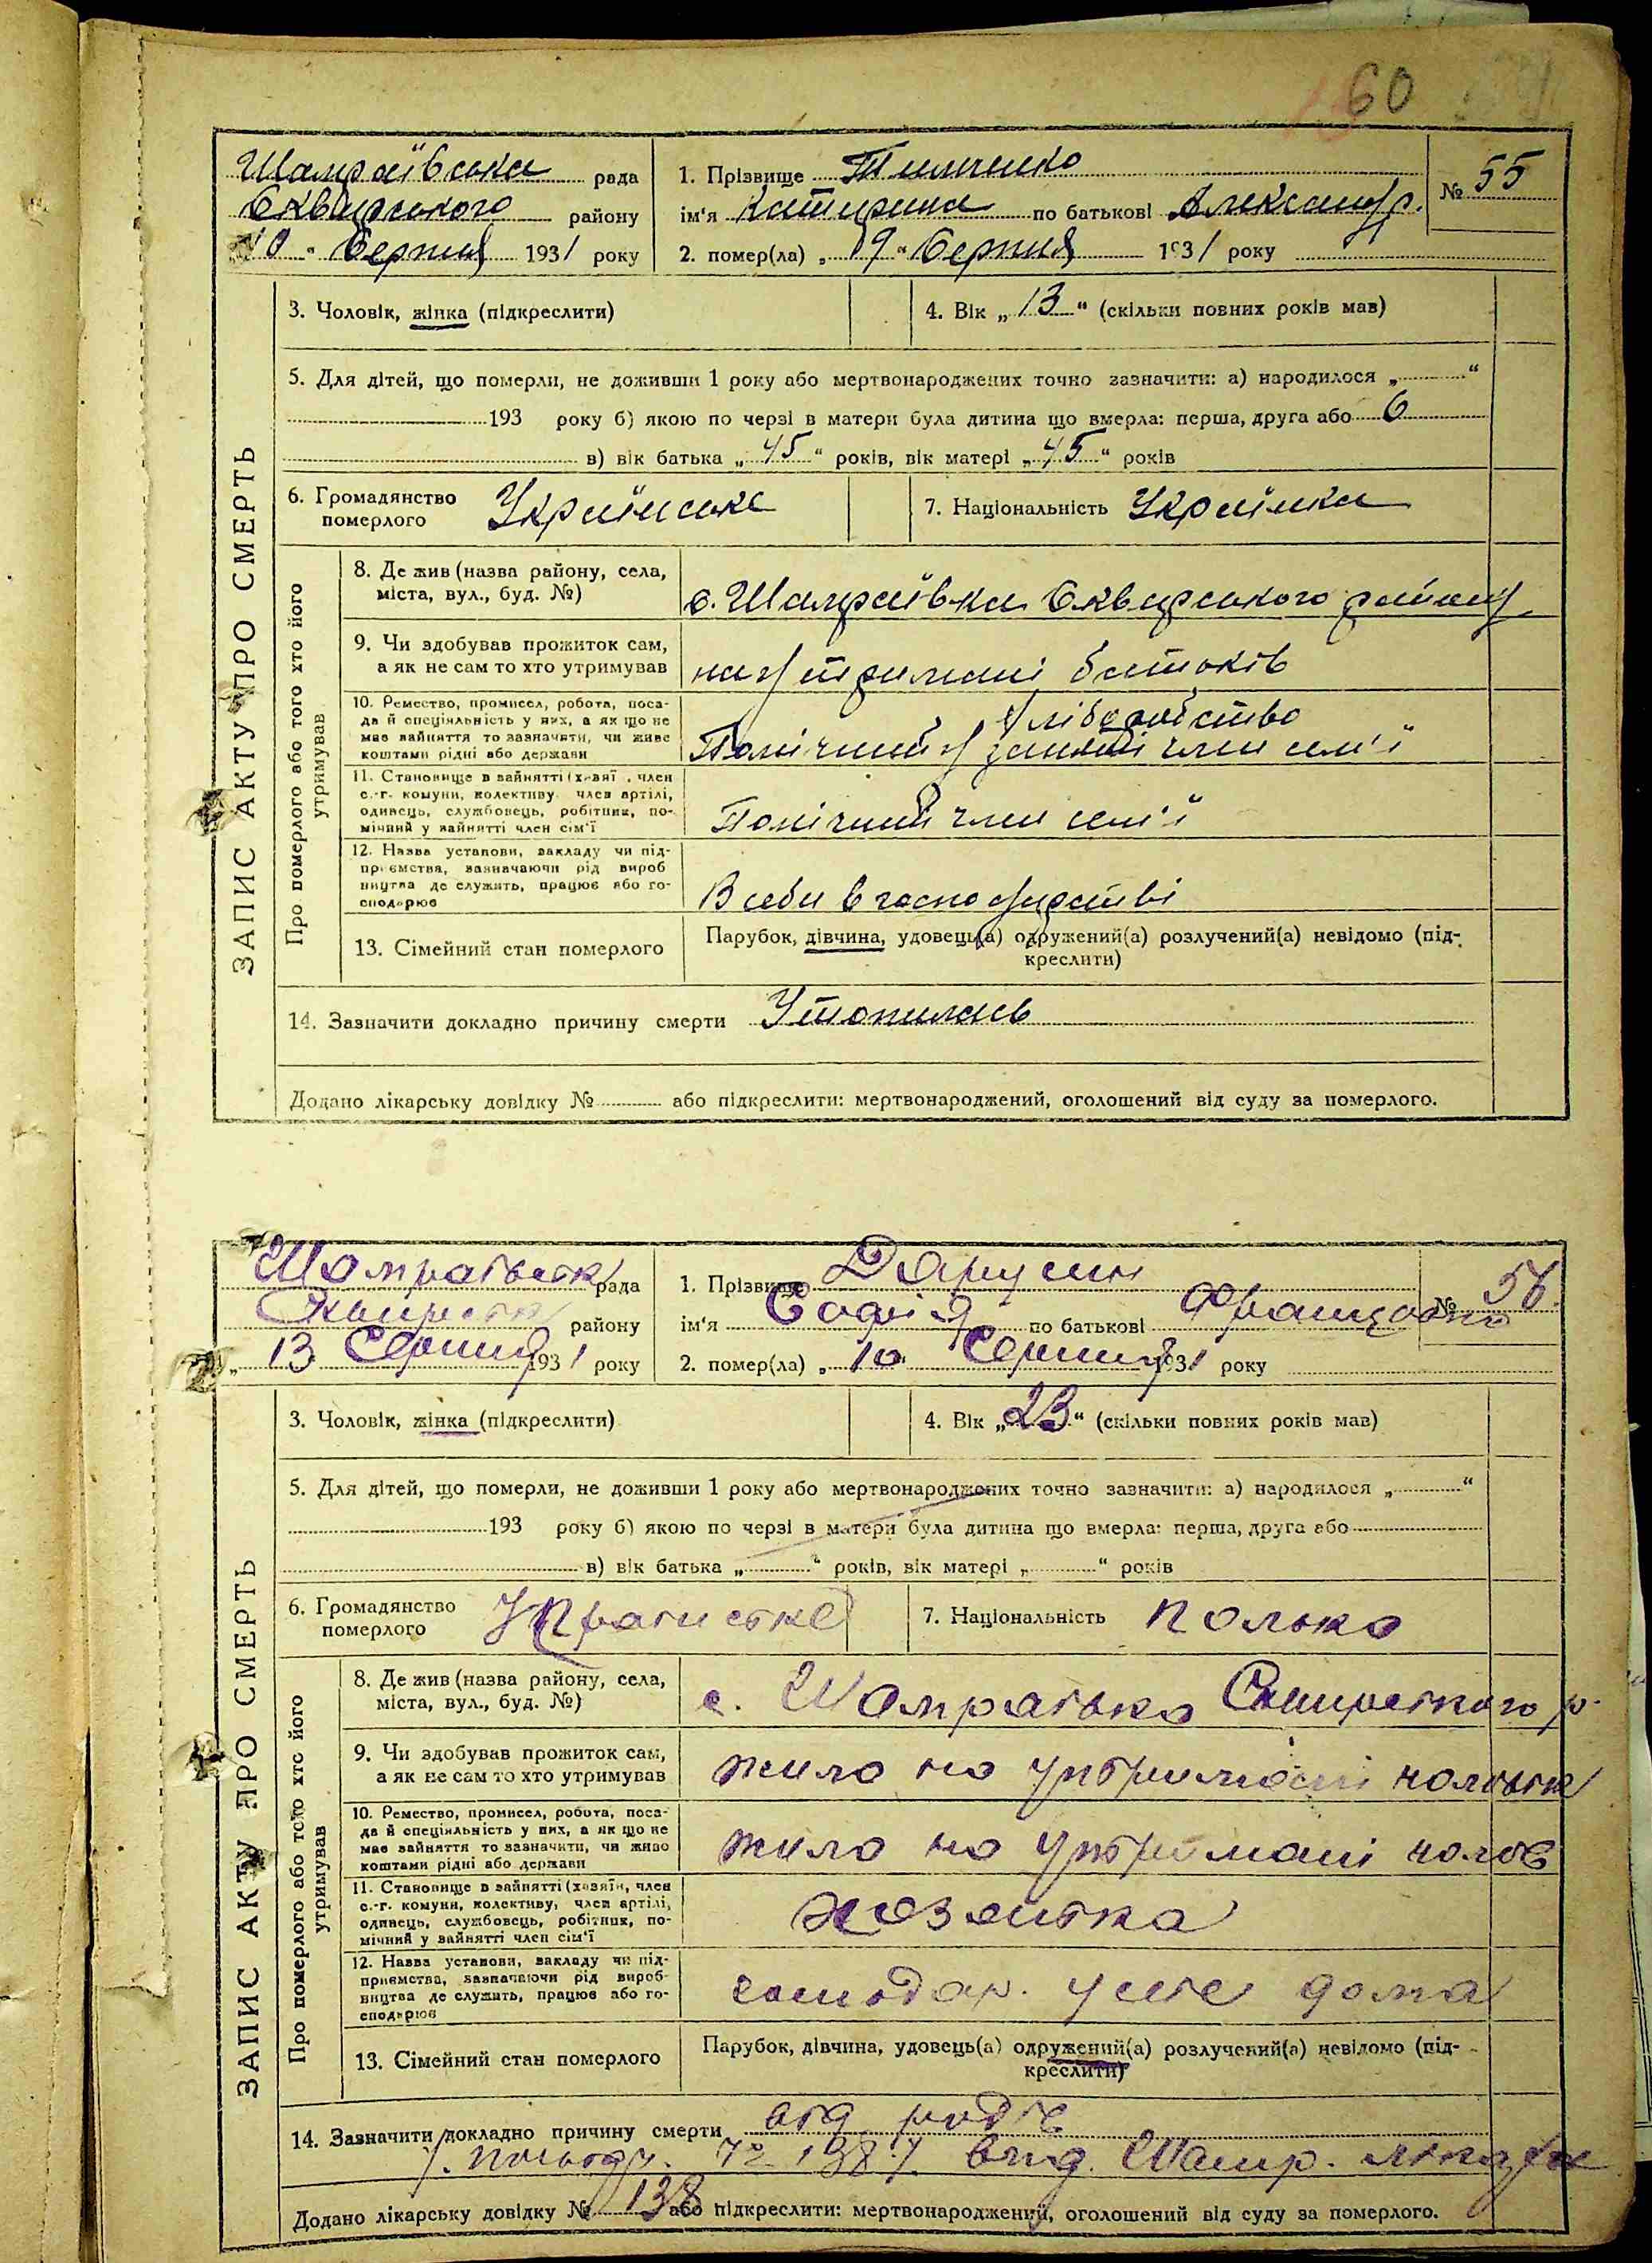 60
Шамраївська рада
Сквирського району
"10" Серпня 1931 року
1. Прізвище Тимченко
ім'я Катирина по батькові Александр.
№ 55
2. помер(ла) „ 9 " Серпня 1931 року
3. Чоловік, жінка (підкреслити)
4. Вік „ 13 " (скільки повних років мав)
5. Для дітей, що померли, не доживши 1 року або мертвонароджених точно зазначити: а) народилося „ "
193 року б) якою по черзі в матери була дитина що вмерла: перша, друга або 6
в) вік батька „ 45 " років, вік матері „ 45 " років
6. Громадянство померлого Українське
7. Національність Українка
ЗАПИС АКТУ ПРО СМЕРТЬ
Про померлого або того хто його утримував
8. Де жив (назва району, села,
міста, вул., буд. №)
с. Шамраївка Сквирського району
9. Чи здобував прожиток сам,
а як не сам то хто утримував
на утримані батьків
10. Ремество, промисел, робота, поса-
да й спеціяльність у них, а як що не
має зайняття то зазначити, чи живе
коштами рідні або держави
хліборобство
Помічний у занятті член семї
11. Становище в зайнятті (хазяї, член
с.-г. комуни, колективу член артілі,
одинець, службовець, робітник, по-
мічний у зайнятті член сім'ї
Помічний член семї
12. Назва установи, закладу чи під-
приємства, зазначаючи рід вироб
ництва де служить, працює або го-
сподарює
В себи в господарстві
13. Сімейний стан померлого
Парубок, дівчина, удовець(а) одружений(а) розлучений(а) невідомо (під-
креслити)
14. Зазначити докладно причину смерти Утопилась
Додано лікарську довідку № або підкреслити: мертвонароджений, оголошений від суду за померлого.
рада
району
„ 13 Серпня 1931 року
1. Прізвище
ім'я Софія по батькові Францовна
№ 56.
2. помер(ла) „ 10 Серпня 1931 року
3. Чоловік, жінка (підкреслити)
4. Вік „ 23 " (скільки повних років мав)
5. Для дітей, що померли, не доживши 1 року або мертвонароджених точно зазначити: а) народилося „ "
193 року б) якою по черзі в матери була дитина що вмерла: перша, друга або
в) вік батька „ " років, вік матері „ " років
6. Громадянство померлого
7. Національність полька
ЗАПИС АКТУ ПРО СМЕРТЬ
Про померлого або того хто його утримував
8. Де жив (назва району, села,
міста, вул., буд. №)
с. Шамраївка Сквирського р.
9. Чи здобував прожиток сам,
а як не сам то хто утримував
жила на утримані
10. Ремество, промисел, робота, поса-
да й спеціяльність у них, а як що не
має зайняття то зазначити, чи живе
коштами рідні або держави
жила на утримані чолов
11. Становище в зайнятті (хазяїн, член
с.-г. комуни, колективу, член артілі,
одинець, службовець, робітник, по-
мічний у зайнятті член сім'ї
хозяйка
12. Назва установи, закладу чи під-
приємства, зазначаючи рід вироб-
ництва де служить, працює або го-
сподарює
господар. у себе дома
13. Сімейний стан померлого
Парубок, дівчина, удовець(а) одружений(а) розлучений(а) невідомо (під-
креслити)
14. Зазначити докладно причину смерти від родів
№ 138 Шамр.
Додано лікарську довідку № 138 або підкреслити: мертвонароджений, оголошений від суду за померлого.